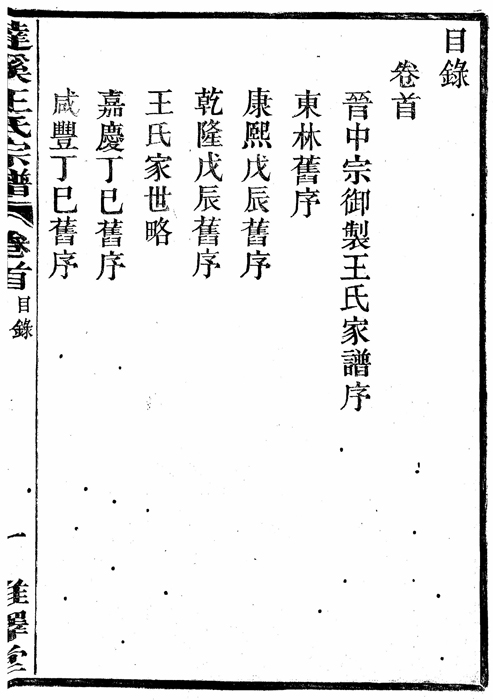 目錄
卷首
晉中宗御製王氏家譜序
東林舊序
康熙戊辰舊序
乾隆戊辰舊序
王氏家世略
嘉慶丁巳舊序
咸豐丁巳舊序
達溪王氏宗譜
卷首
目錄
一
雍睦堂